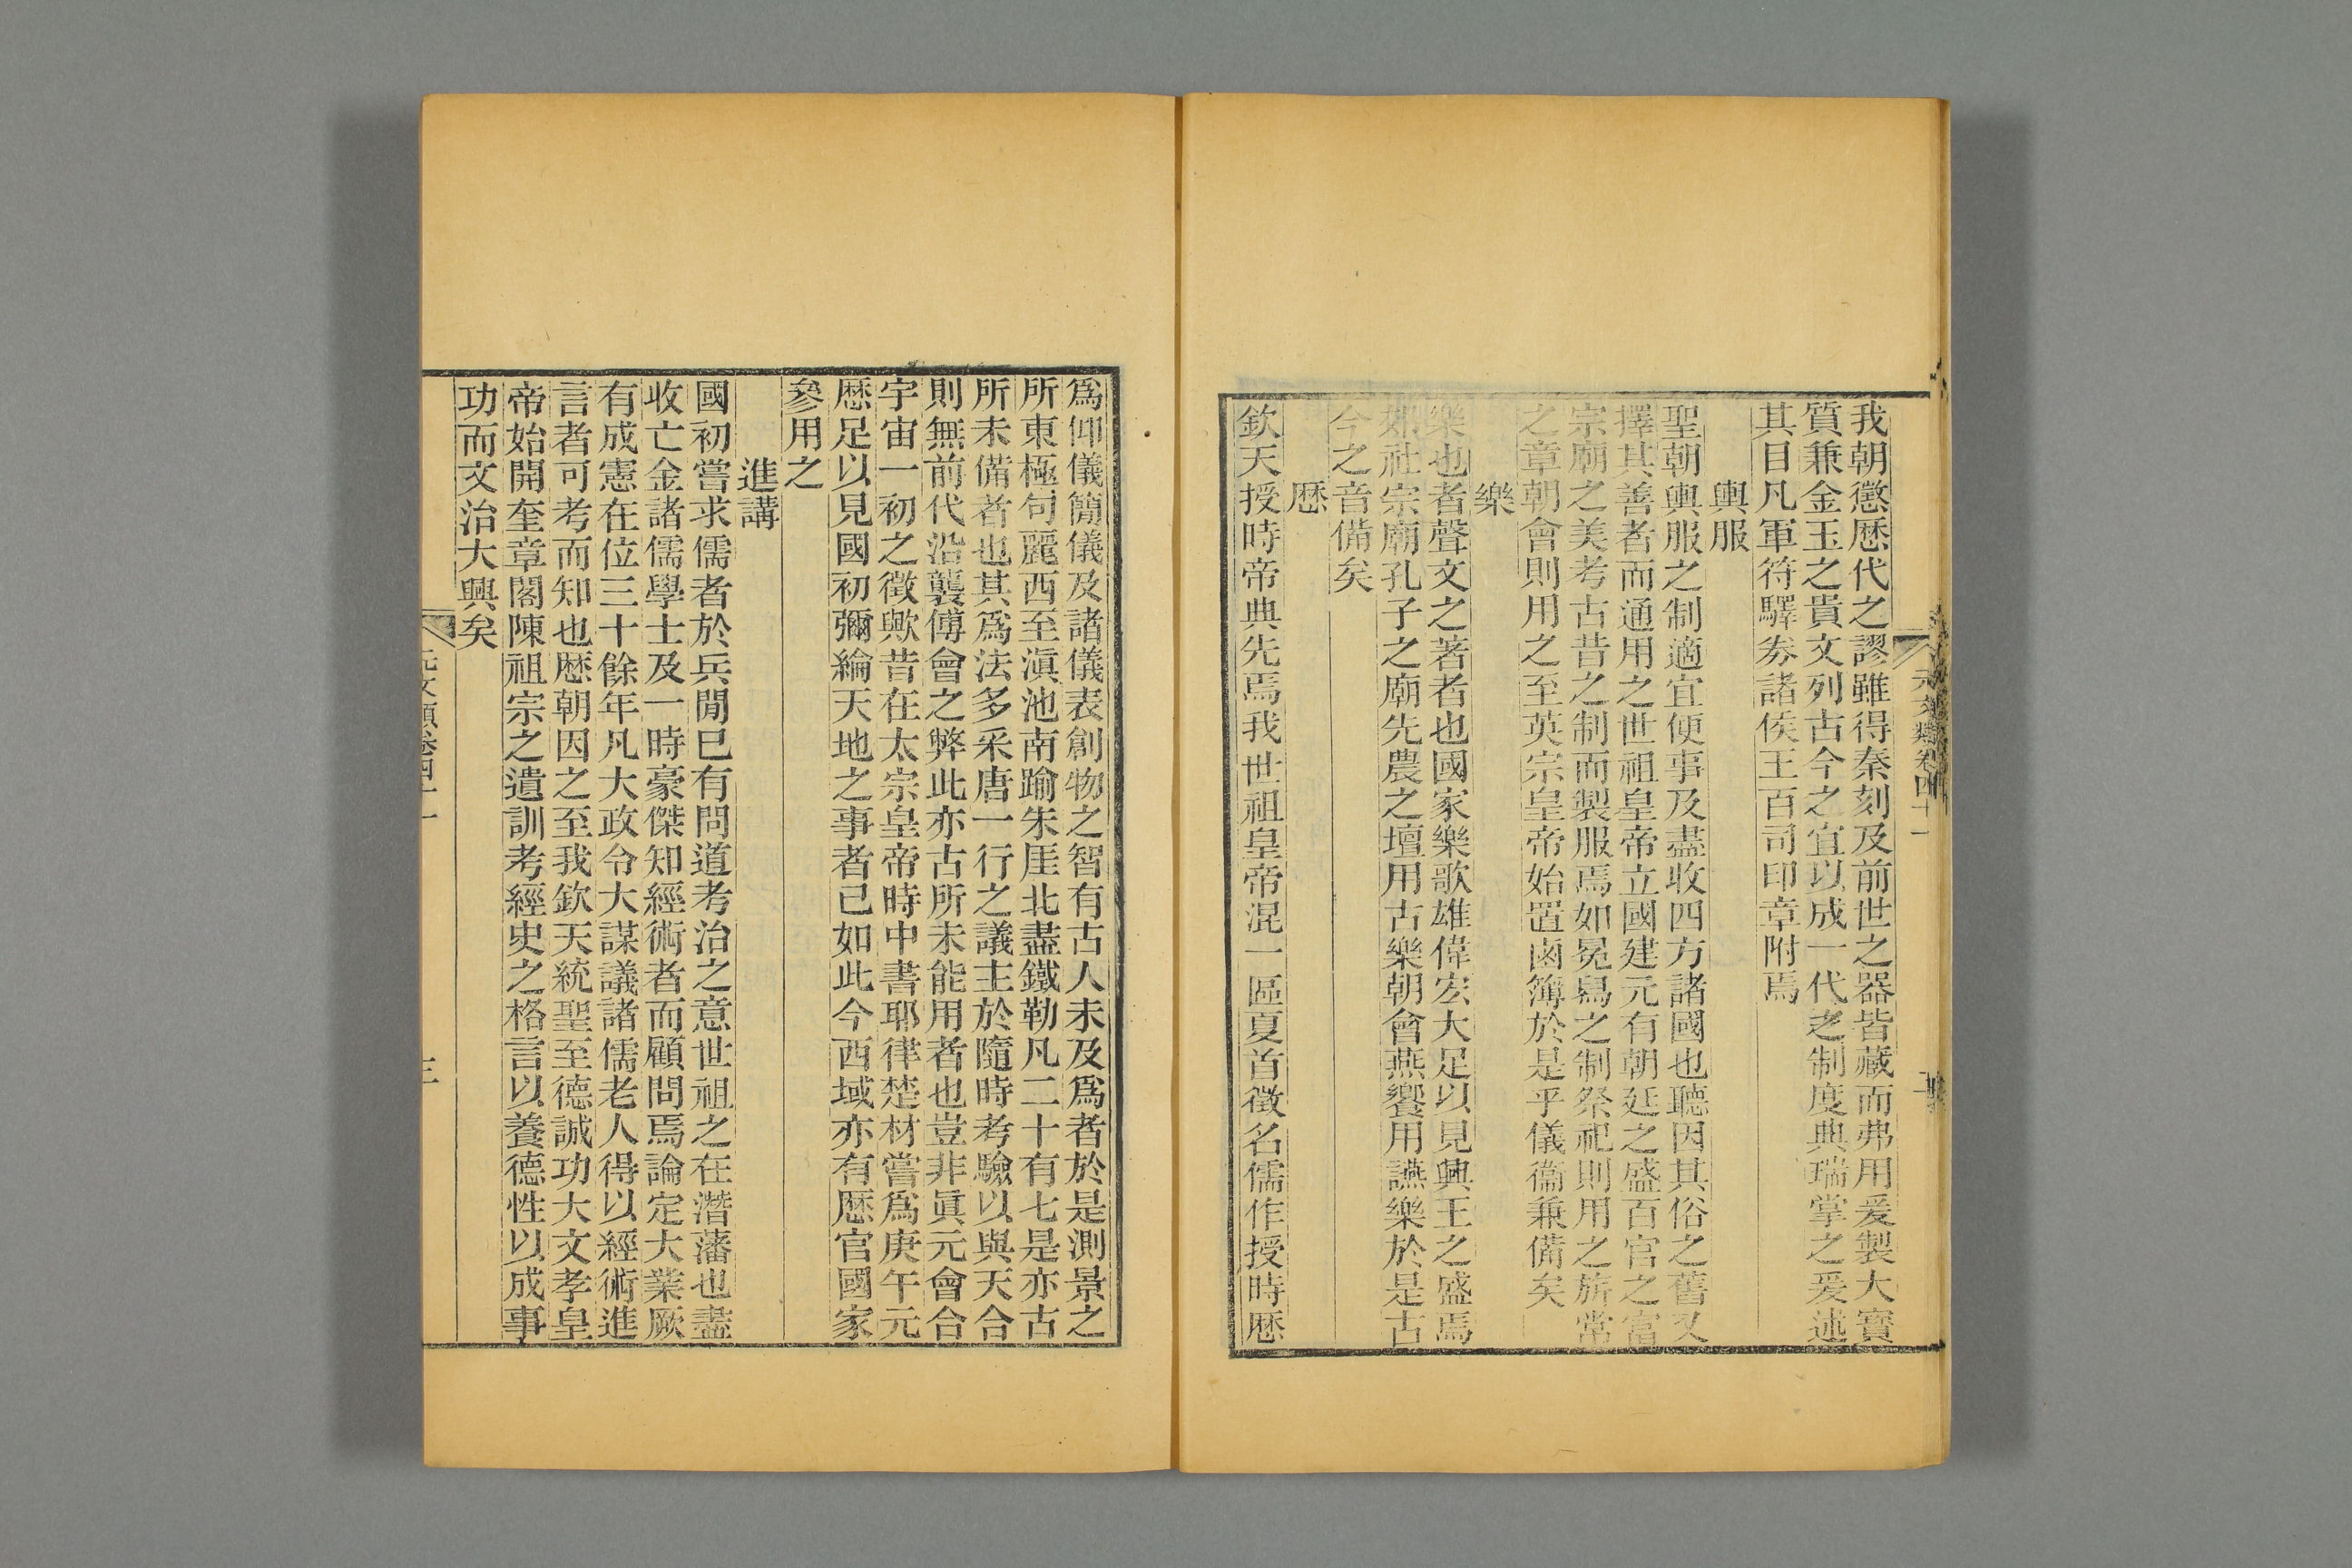 元文類卷四十一
我朝懲厯代之謬雖得秦刻及前世之器皆藏而弗用爰製大寶
質兼金玉之貴文列古今之宜以成一代之制度典瑞掌之爰述
其目凡軍符驛券諸侯王百司印章附焉
輿服
聖朝輿服之制適宜便事及盡收四方諸國也聽因其俗之舊又
擇其善者而通用之世祖皇帝立國建元有朝廷之盛百官之富
宗廟之美考古昔之制而製服焉如冕舄之制祭祀則用之旂常
之章朝會則用之至英宗皇帝始置鹵簿於是乎儀衞兼備矣
樂
樂也者聲文之著者也國家樂歌雄偉宏大足以見興王之盛焉
郊社宗廟孔子之廟先農之壇用古樂朝會燕饗用讌樂於是古
今之音備矣
厯
欽天授時帝典先焉我世祖皇帝混一區夏首徵名儒作授時厯
爲仰儀簡儀及諸儀表創物之智有古人未及爲者於是測景之
所東極句麗西至滇池南踰朱厓北盡鐵勒凡二十有七是亦古
所未備者也其爲法多釆唐一行之議主於隨時考驗以與天合
則無前代沿襲傅會之弊此亦古所未能用者也豈非眞元會合
宇宙一初之徵歟昔在太宗皇帝時中書耶律楚材嘗爲庚午元
厯足以見國初彌綸天地之事者已如此今西域亦有厯官國家
參用之
進講
國初嘗求儒者於兵閒已有問道考治之意世祖之在潛藩也盡
收亡金諸儒學士及一時豪傑知經術者而顧問焉論定大業厥
有成憲在位三十餘年凡大政令大謀議諸儒老人得以經術進
言者可考而知也厯朝因之至我欽天統聖至德誠功大文孝皇
帝始開奎章閣陳祖宗之遺訓考經史之格言以養德性以成事
功而文治大興矣
元文類卷四十一
三